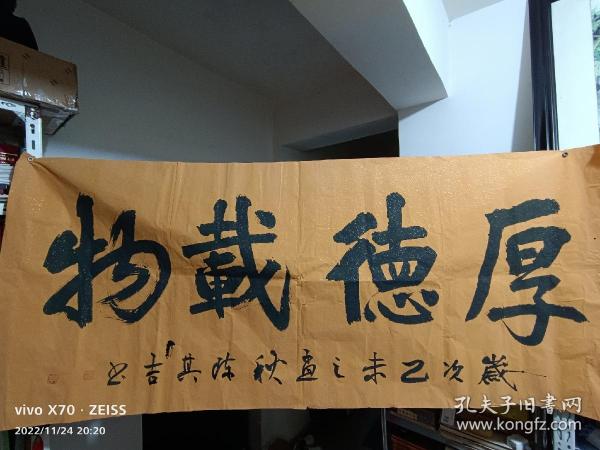 厚德載物
歲次乙未之孟秋陈其吉书
vivo X70 · ZEISS
2022/11/24 20:20
孔夫子旧書网
www.kongfz.com